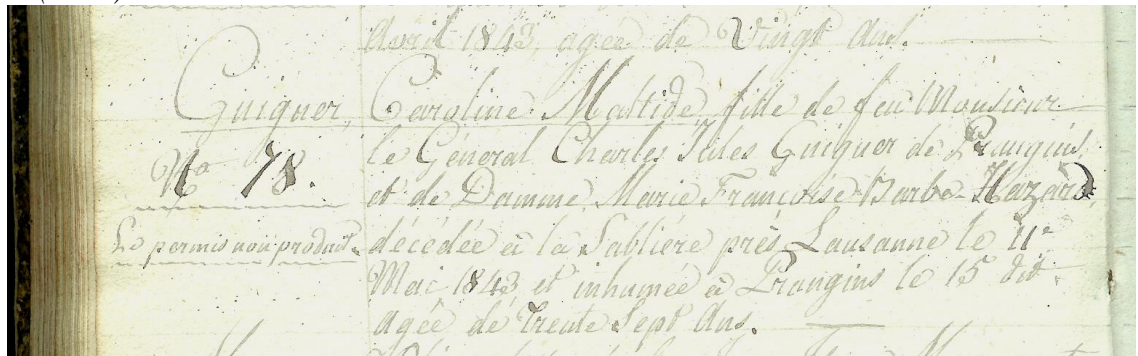 Avril 1843, agée de Vingt Ans.
Guiguer, Caroline Maltide fille de feu Monsieur
le Général Charles Jules Guiguer de Prangins,
No 78.
et de Damme, Marie Françoise Barbe Hazard,
Le permis non produit. décédée à la Sablière près Lausanne le 11e
Mai 1843 et inhumée à Prangins le 15 dit
Agée de trente Sept Ans.